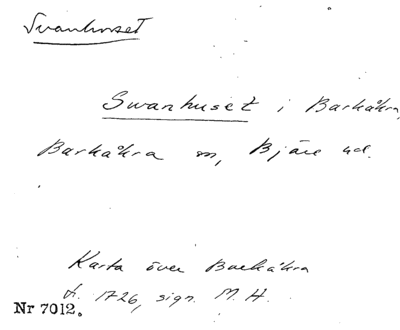 Svanhuset
Swanhuset i Barkåkra,
Barkåkra sn, Bjäre hd.
Karta över Barkåkra
fr. 1726, sign. M. H.
Nr 7012.